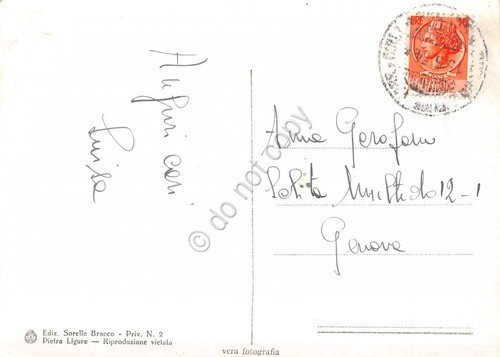 Auguri cari
Luisa
Anna Garofano
Salita 12-1
Genova
Ediz. Sorelle Bracco - Priv. N. 2
Pietra Ligure — Riproduzione vietata
vera fotografia
do not copy